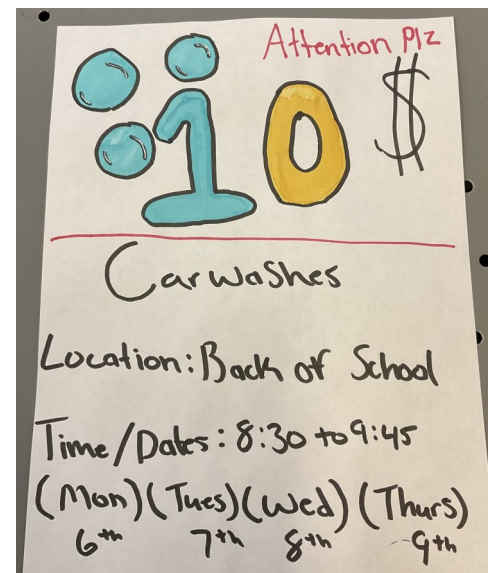 Attention Plz
10 $
Carwashes
Location: Back of School
Time/Dates: 8:30 to 9:45
(Mon) (Tues) (Wed) (Thurs)
6th 7th 8th 9th